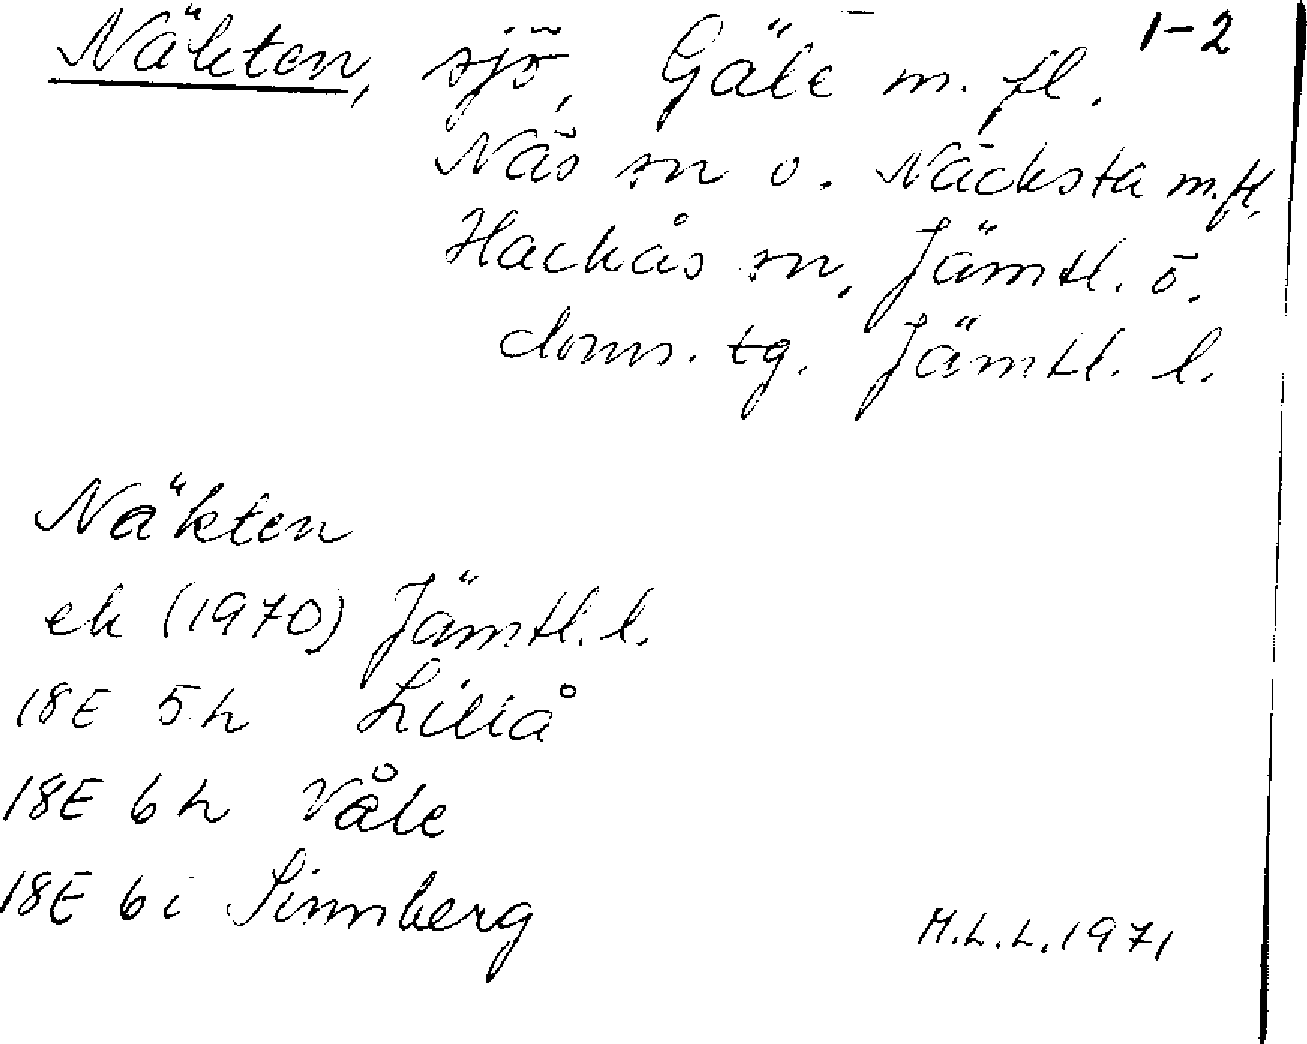 Näkten, sjö, Gäle m. fl. 1-2
Näs sn o. Näcksta m.fl.
Hackås sn, Jämtl. ö.
doms. tg. Jämtl. l.
Näkten
ek (1970) Jämtl. l.
18E 5h Lillå
18E 6h Våle
18E 6i Sinnberg
M.L.L. 1971